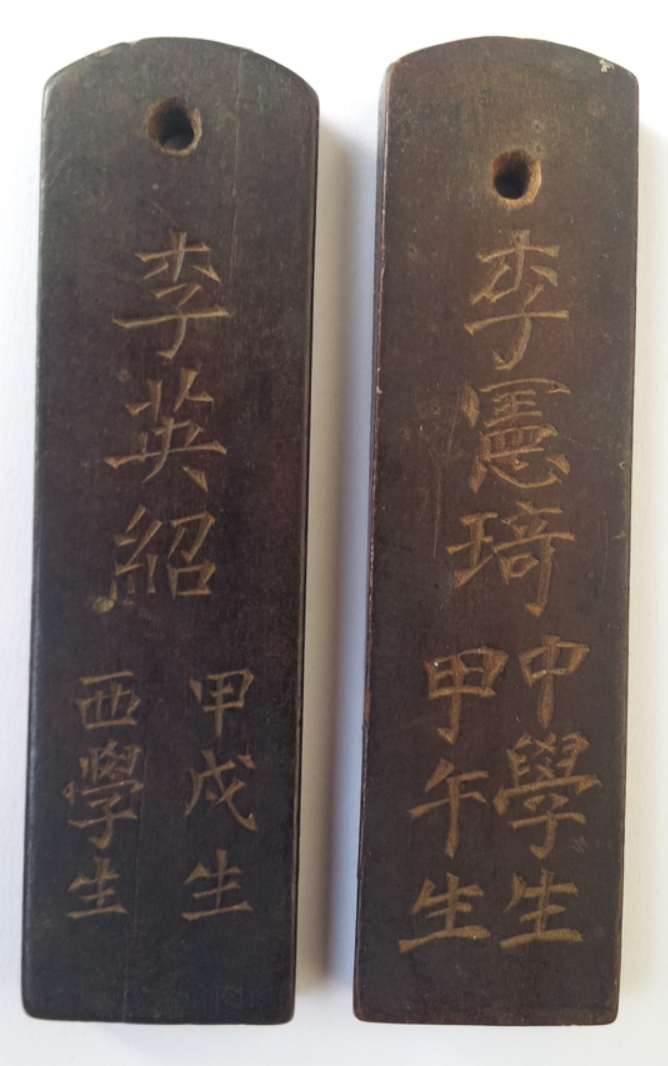 李英紹
甲戌生
西學生
李憲琦
中學生
甲午生